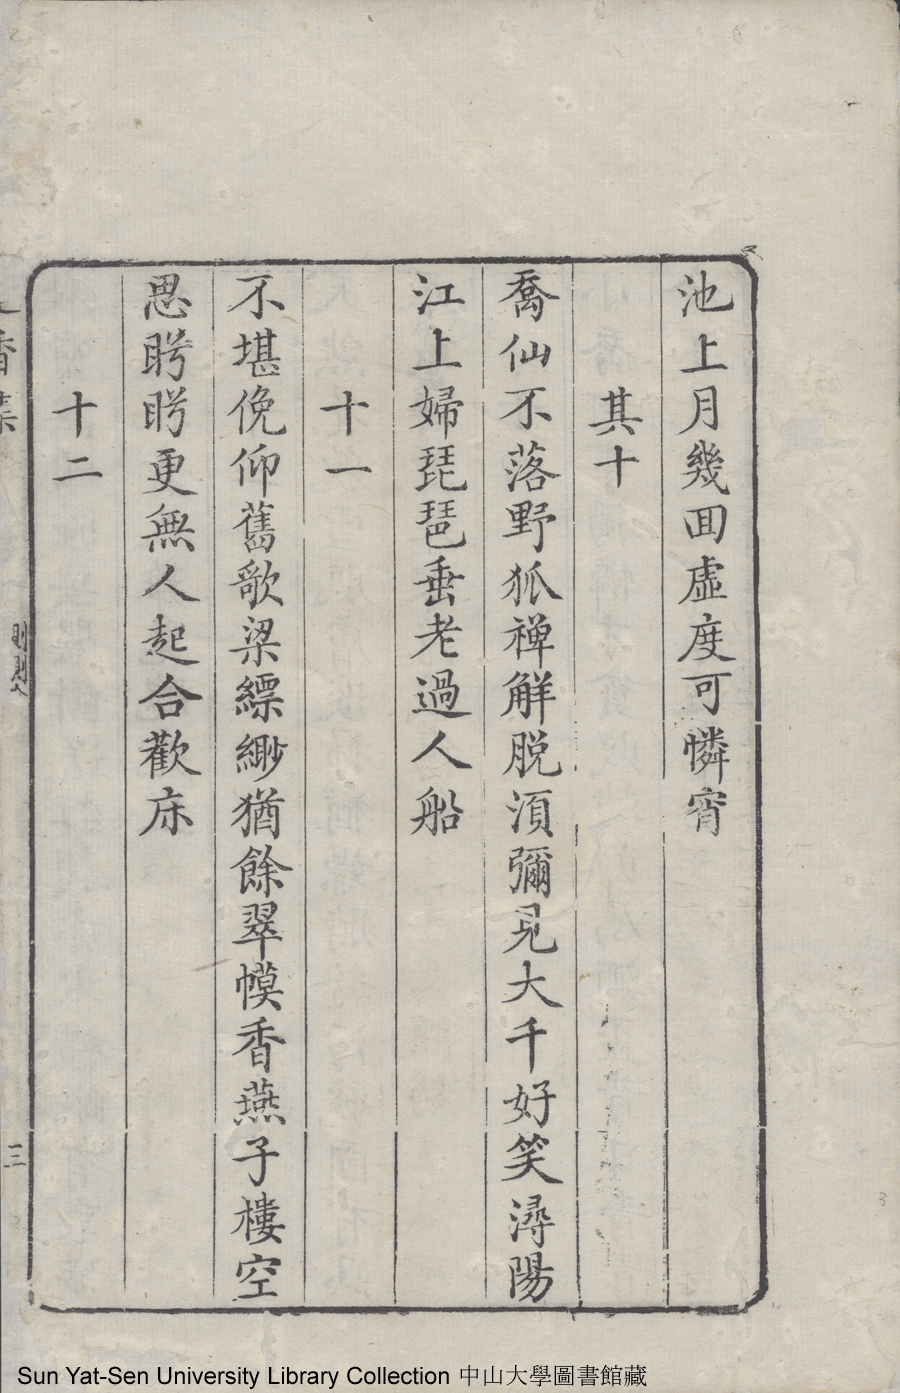 池上月幾回虛度可憐宵
其十
喬仙不落野狐禅解脱須彌見大千好笑潯陽
江上婦琵琶垂老過人船
十一
不堪俛仰舊歌梁縹緲猶餘翠幙香燕子樓空
思盻盻更無人起合歡床
十二
香集
三
3
Sun Yat-Sen University Library Collection 中山大學圖書館藏